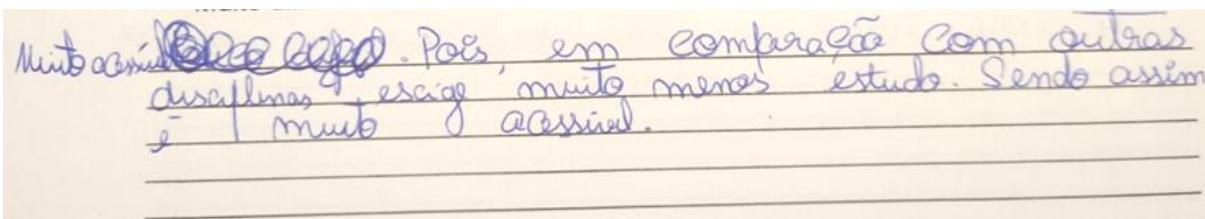 Muito acessível. Pois, em comparação com outras
disciplinas, escige muito menos estudo. Sendo assim
é muito acessível.